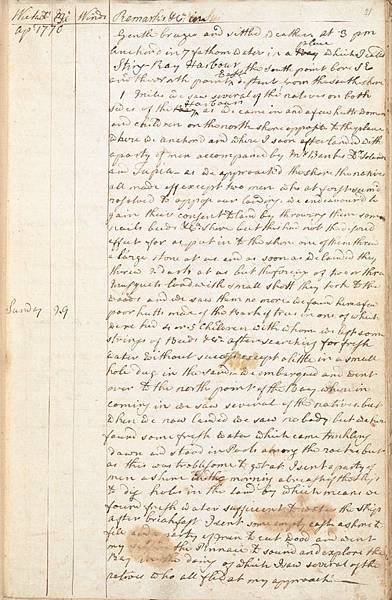 Week Day Winds Remarks &Ca in
Apl 1770 Gentle breeze and settled Weather at 3 pm
Anchor'd in 7 fathom Water in a place which I called
Sting-Ray Harbour the South point bore SE
and the North point East distant from the south shore
1 Mile we saw several of the natives on both
sides of the Harbour as we came in and a few hutts Women
and children on the north shore opposite to the place
where we anchor'd and where I soon after landed with
a party of men accompaned by Mr Banks Dr Solander
and Tupia as we approached the shore the natives
all made off except two men who at first seem'd
resolved to oppose our landing we endeavour'd to
gain their consent to land by throwing them some
nails beeds &Ca a shore but this had not the desired
effect for as we put in to the shore one of them threw
a large stone at us and as soon as we landed they
threw 2 darts at us but the fireing of two or three
Musquets load with small shott they took to the
woods and we saw them no more we found here a few
poor hutts made of the bark of trees in one of which
were hid 4 or 5 children with whom we left some
Sunday 29 strings of Beeds &Ca after searching for fresh
water without success except a little in a small
hole dug in the sand we embarqued and went
over to the north point of the Bay where in
coming in we saw several of the natives but
when we now landed we saw no body but we here
found some fresh water which came trinkling
down and stood in Pools among the rocks but
as this was troblesome to get at I sent a party of
men a shore in the morning abreast of the ship
to dig holes in the sand by which means we
found fresh water sufficient to water the ship
after breakfast I sent some empty casks a shore to
fill and a party of men to cut wood and went
my in the Pinnace to sound and explore the
Bay in the doing of which I saw several of the
natives who all fled at my approach